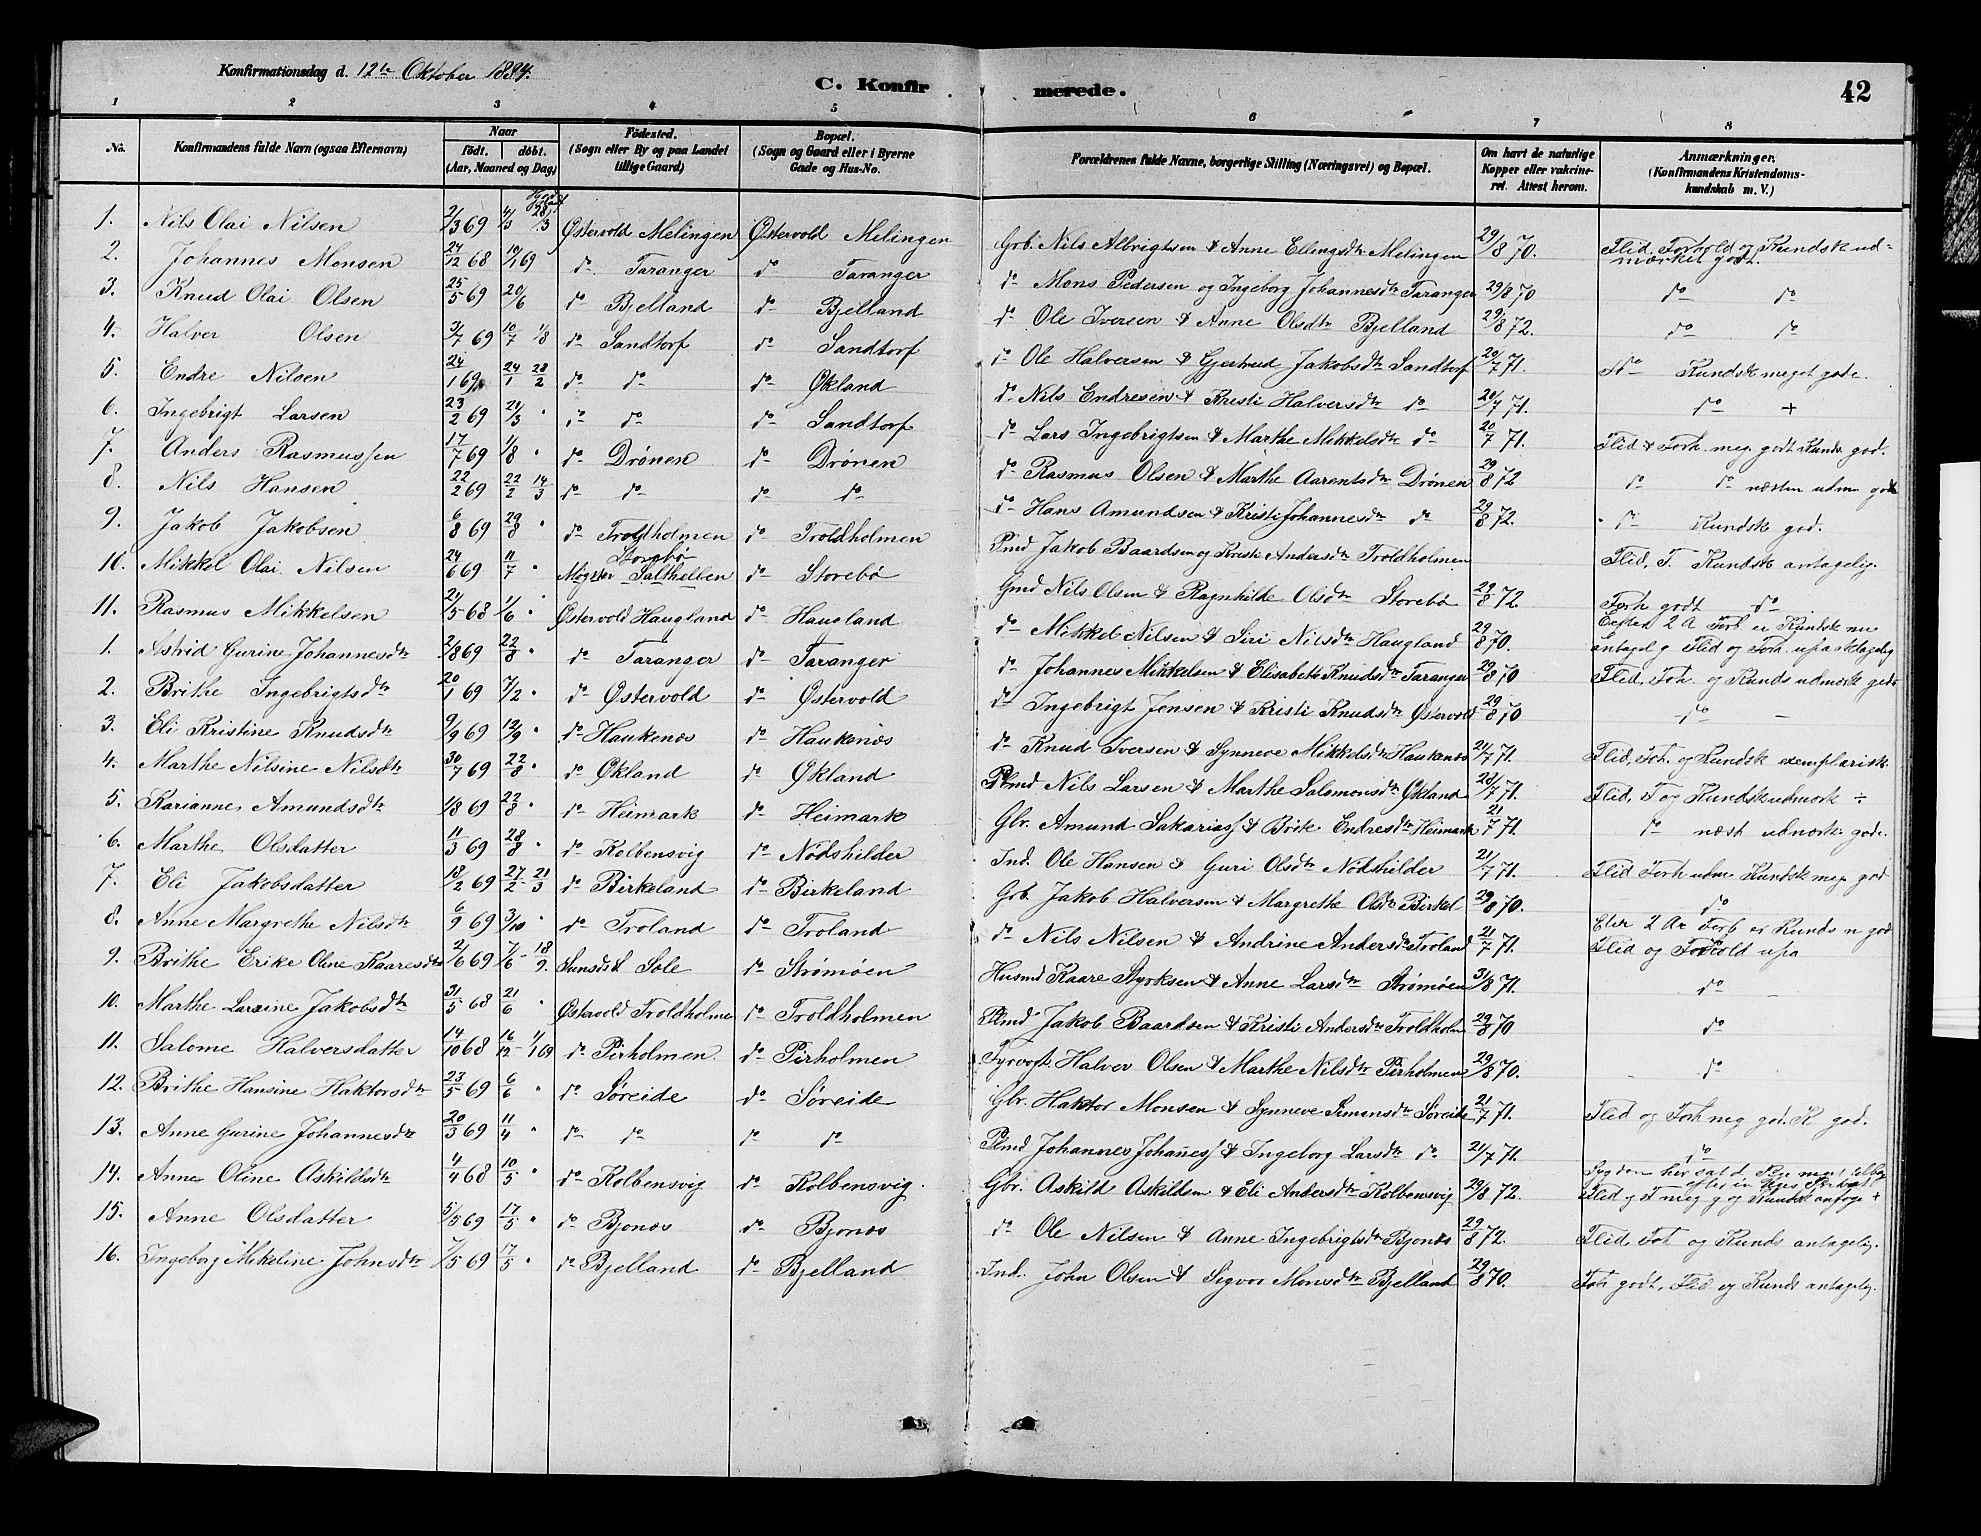 Konfirmationsdag d. 12te Oktober 1884.
C. Konfirmerede.
42
1 2 3 4 5 6 7 8
No. Konfirmandens fulde Navn (ogsaa Efternavn) Naar født. døbt. (Aar, Maaned og Dag) Fødested. (Sogn eller By og paa Landet tillige Gaard) Bopæl. (Sogn og Gaard eller i Byerne Gade og Hus-No. Forældrenes fulde Navne, borgerlige Stilling (Næringsvei) og Bopæl. Om havt de naturlige Kopper eller vakcineret. Attest herom. Anmærkninger. (Konfirmandens Kristendomskundskab m. V.)
1. Nils Olai Nilsen 2/3 69 4/3 28/3 Østervold Melingen Østervold Melingen Grb. Nils Albrigtsen & Anne Ellingsdtr Melingen 29/8 70. Flid, Forhold og Kundsk udmærket godt.
2. Johannes Monsen 24/12 68 10/1 69 do Taranger do Taranger do Mons Pedersen og Ingeborg Johannesdtr Taranger 29/8 70 do do
3. Knud Olai Olsen 25/5 69 20/6 do Bjelland do Bjelland do Ole Iversen & Anne Olsdtr Bjelland 29/8 72. do do
4. Halver Olsen 3/7 69 10/7 1/8 do Sandtorf do Sandtorf do Ole Halversen & Gjertrud Jakobsdtr Sandtorf 20/7 71. do Kundsk meget gode.
5. Endre Nilsen 24/1 69 24/1 28/2 do do do Økland do Nils Endresen & Kristi Halversdtr do 20/7 71. do +
6. Ingebrigt Larsen 23/2 69 21/3 " do do do Sandtorf do Lars Ingebrigtsen & Marthe Mikkelsdtr do 20/7 71. Flid & Forh. meg. godt Kunds. god.
7. Anders Rasmussen 17/7 69 1/8 " do Drönen do Drönen do Rasmus Olsen & Marthe Aarentsdtr Drönen 29/8 72 do do næsten udm. godt
8. Nils Hansen 22/2 69 22/2 14/3 do do do do do Hans Amundsen & Kristi Johannesdtr do 29/8 72. do Kundsk god.
9. Jakob Jakobsen 6/8 69 29/8 " do Troldholmen do Troldholmen Plmd Jakob Baardsen og Kristi Andersdtr Troldholmen Flid, F. Kundsk antagelig.
10. Mikkel Olai Nilsen 24/6 69 11/7 " Møgster Salthellen Storebø do Storebø Gmd Nils Olsen & Ragnhilde Olsdtr Storebø 29/8 72. Forh godt do
11. Rasmus Mikkelsen 21/5 68 1/6 " Østervold Haugland do Haugland do Mikkel Nilsen & Siri Nilsdtr Haugland 29/8 70. Efter 2 A Forb er Kundsk nu antagel g Flid og Forh. upaaklagelig
1. Astrid Gurine Johannesdtr 2/8 69 22/8 " do Taranger do Taranger do Johannes Mikkelsen & Elisabeth Knudsdtr Taranger 29/8 70 Flid, Foh. og Kunds udmærk godt
2. Brithe Ingebrigtsdtr 20/1 69 7/2 " do Østervold do Østervold do Ingebrigt Jensen & Kristi Knudsdtr Østervold 29/8 70 do
3. Eli Kristine Knudsdtr 9/9 69 12/9 " do Haukenæs do Haukenæs do Knud Iversen & Synneve Mikkelsdtr Haukenæs 21/7 71. Flid, Foh. og Kundsk exemplarisk.
4. Marthe Nilsine Nilsdtr 30/7 69 22/8 " do Økland do Økland Plmd Nils Larsen & Marthe Salomonsdtr Økland 21/7 71. Flid, F og Kundsk udmærk ÷
5. Karianne Amundsdtr 1/8 69 22/8 " do Heimark do Heimark Gbr. Amund Sakariass & Brite Endresdtr Heimark 21/7 71. do næst udmærk. gode.
6. Marthe Olsdatter 11/3 69 28/8 " do Kolbensvig do Nödshilder Ind. Ole Hansen & Guri Olsdtr Nödshilder 21/7 71. Flid Forh udm Kundsk meg god
7. Eli Jakobsdatter 18/2 69 27/2 21/3 do Birkeland do Birkeland Grb. Jakob Halversen & Margrethe Olsdtr Birkel 29/8 70. do
8. Anne Margrethe Nilsdtr 6/9 69 3/10 " do Troland do Troland do Nils Nilsen & Andrine Andersdtr Troland 21/7 71. Efter 2 Aa Forb er Kunds n god Flid og Forhold upa
9. Brithe Erike Oline Kaaresdtr 2/6 69 7/6 18/9. Sunds Sole do Strømøen Husmd Kaare Styrksen & Anne Larsdtr Strømøen 31/8 71. do
10. Marthe Larsine Jakobsdtr 31/5 68 21/6 " Østervold Troldholme do Troldholmen Plmd Jakob Baardsen & Kristi Andersdtr Troldholm 29/8 70 do
11. Salome Halversdatter 14/10 68 16/12 1/1 69 do Pirholmen do Pirholmen Fyrvogt. Halver Olsen & Marthe Nilsdtr Pirholmen 29/8 70. do
12. Brithe Hansine Haktorsdtr 23/5 69 6/6 " do Søreide do Søreide Gbr. Haktor Monsen & Synneve Simonsdtr Søreide 21/7 71. Flid og Forh meg god. K god.
13. Anne Gurine Johannesdtr 20/3 69 11/4 " do do do do Plmd Johannes Johaness & Ingeborg Larsdtr do 21/7 71. do
14. Anne Oline Askildsdtr 4/4 68 10/5 " do Kolbensvig do Kolbensvig. Gbr. Askild Askildsen & Eli Andersdtr Kolbensvig 29/8 72. Sygdom har sat d. Flid g F meg g og Kundsk +
15. Anne Olsdatter 5/5 69 17/5 " do Bjonæs do Bjonæs do Ole Nilsen & Anne Ingebrigtsdtr Bjonæs 29/8 72. Flid, Foh og Kunds antagelig.
16. Ingeborg Mikeline Johnsdtr 7/5 69 17/5 " do Bjelland do Bjelland Ind. John Olsen & Sigvor Monsdtr Bjelland 29/8 70. Foh godt, Flid og Kunds antagelig.